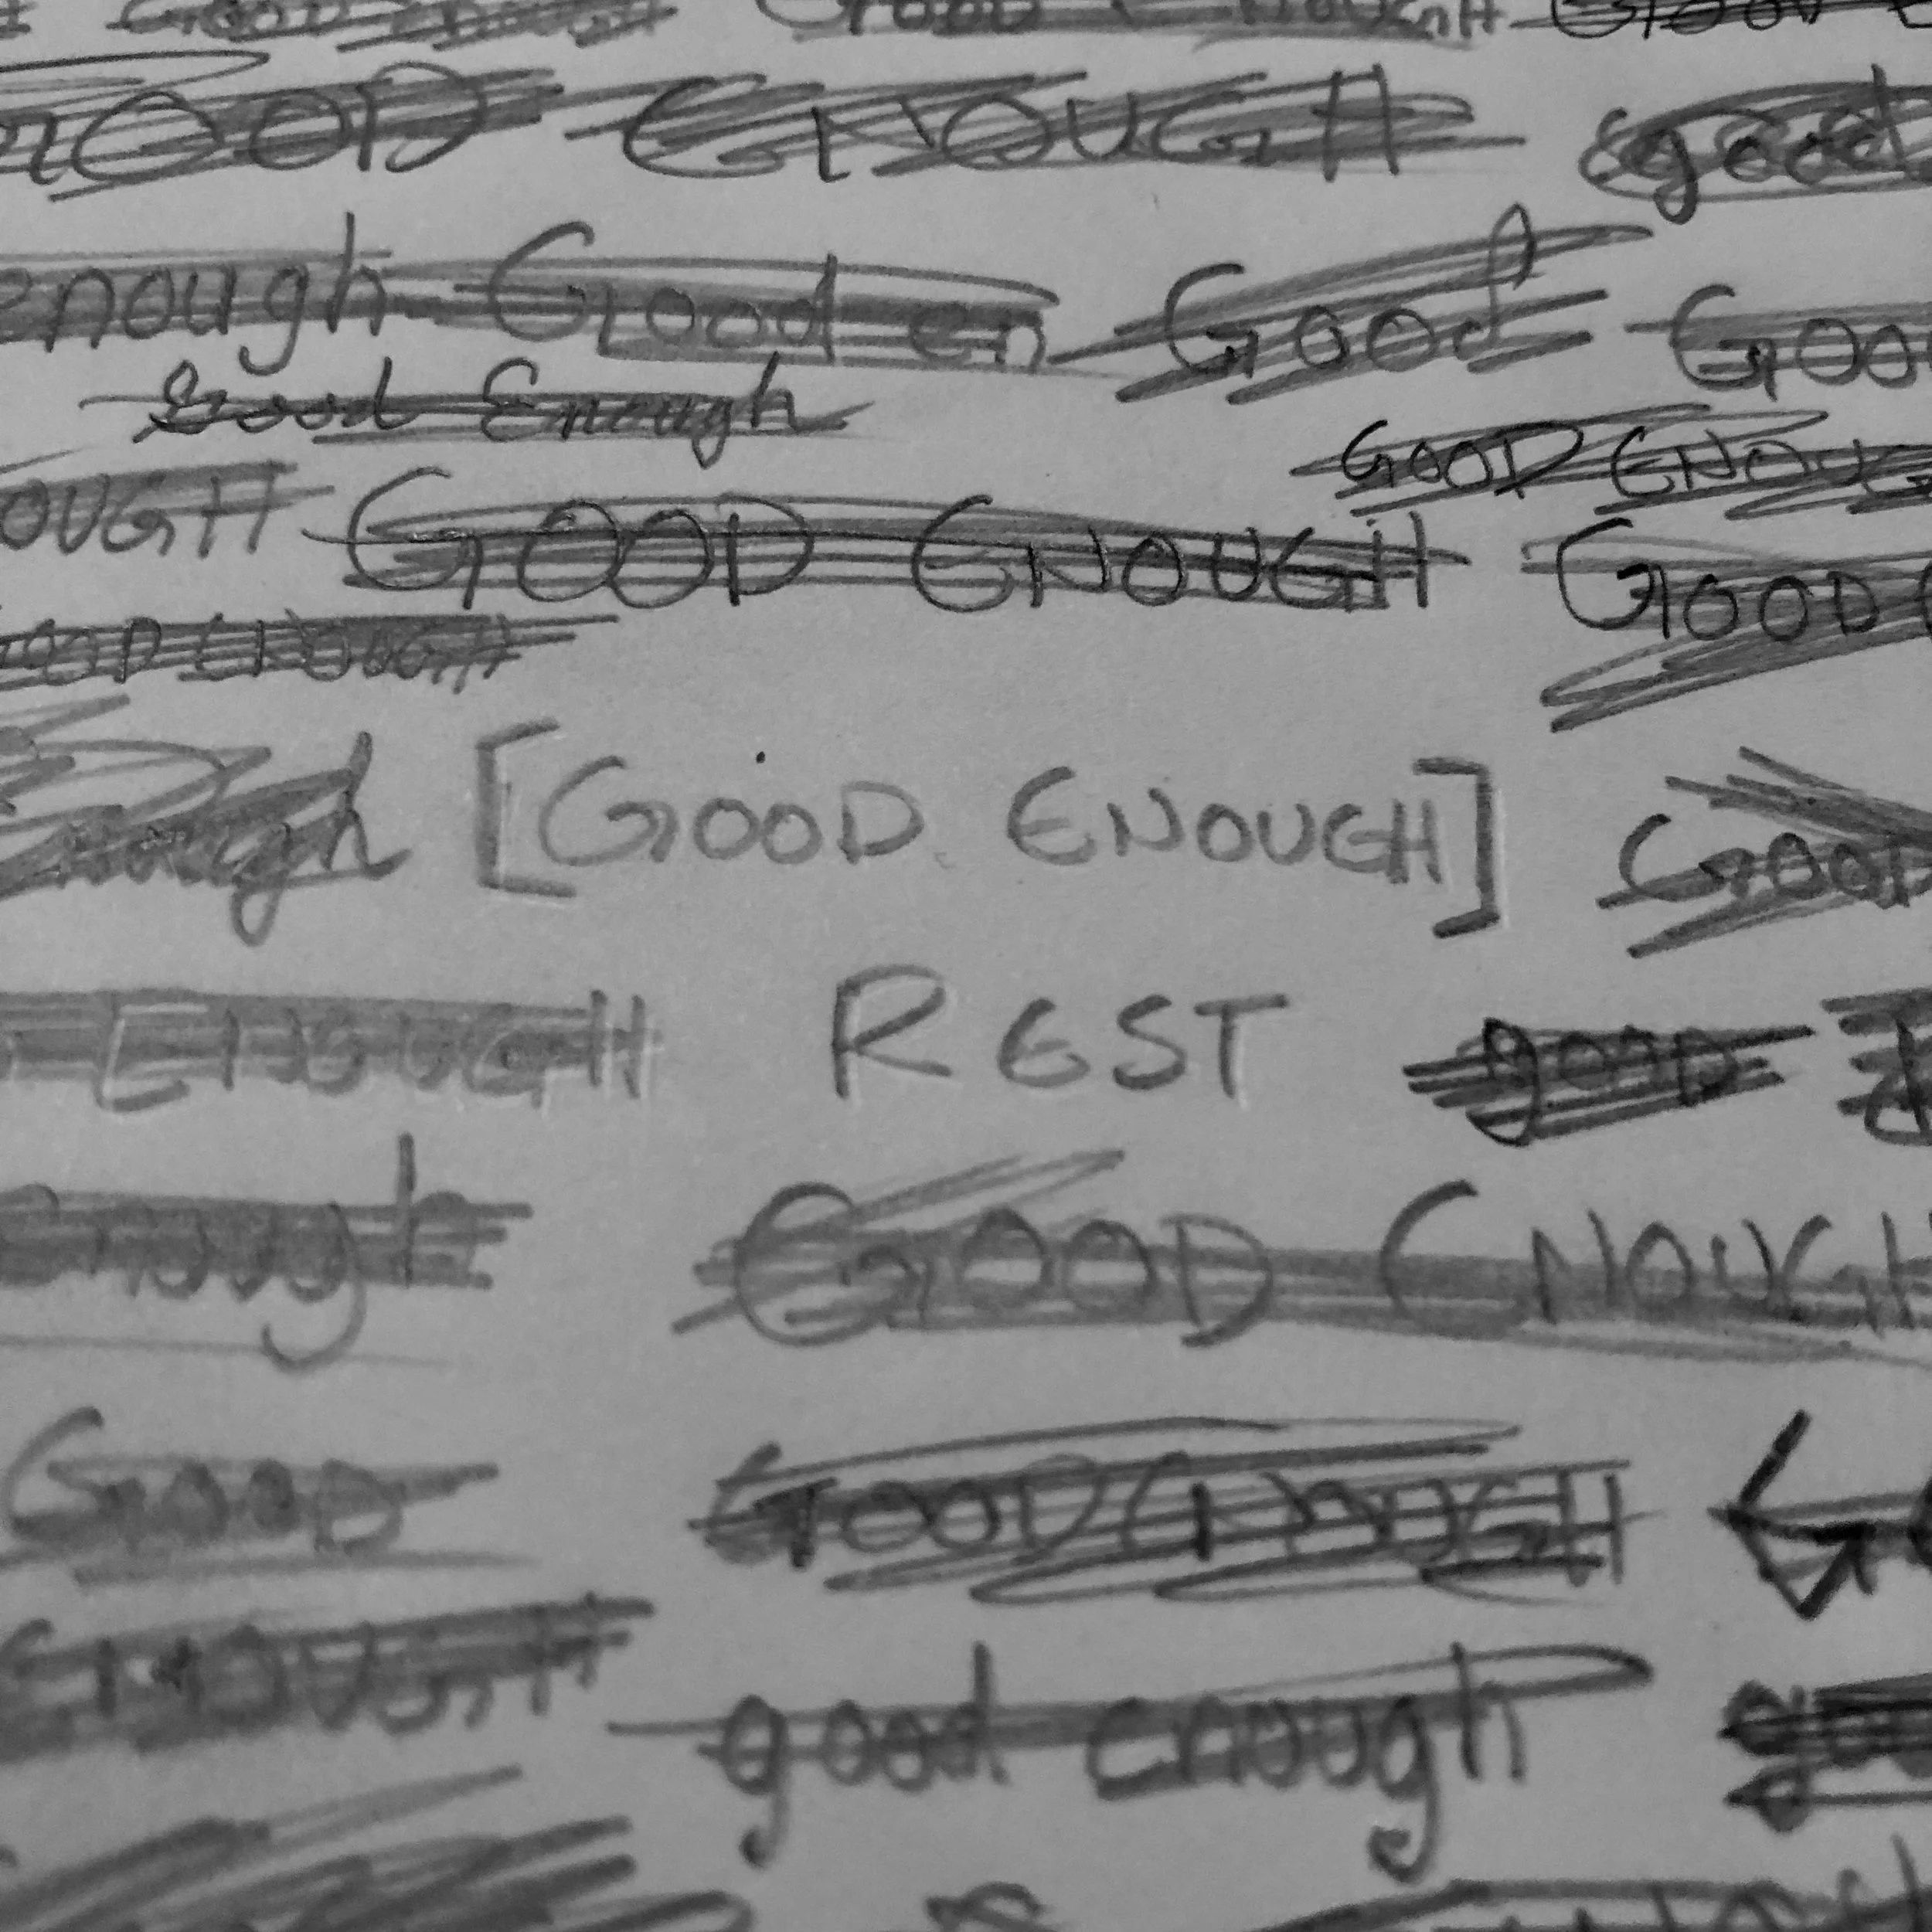 GOOD ENOUGH GOOD
GOOD ENOUGH good
enough Good en Good Goo
Good Enough
GOOD ENOUG
OUGH GOOD ENOUGH GOOD
OOD ENOUGH
Enough [GOOD ENOUGH] GOOD
ENOUGH REST gooD
enough GOOD ENOUGH
GOOD GOOD ENOUGH G
ENOUGH good enough go